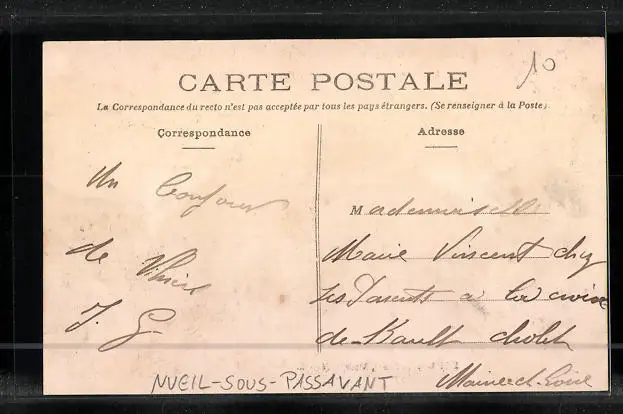 10
CARTE POSTALE
La Correspondance du recto n'est pas acceptée par tous les pays étrangers. (Se renseigner à la Poste).
Correspondance
Un Bonjour
de Vhiers
J. G.
Adresse
Mademoiselle
Marie Vincent chez
ses Parents a la croix
de Bault cholet
Maine et Loire
NUEIL-SOUS-PASSAVANT